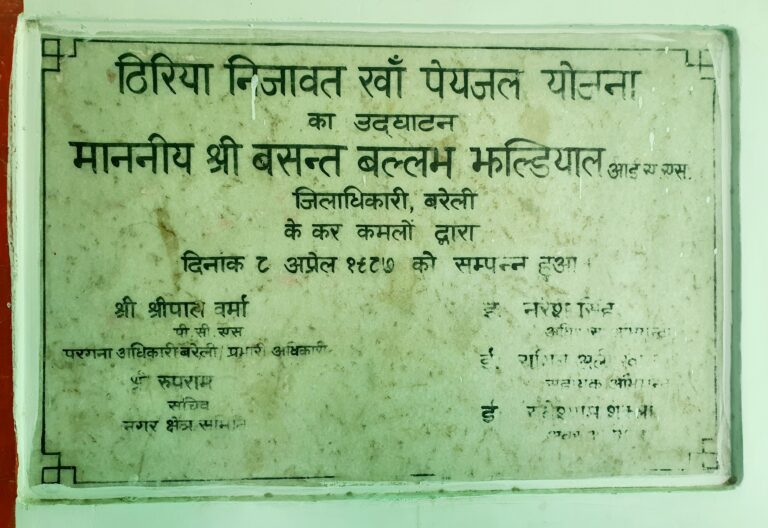 ठिरिया निजावत खाँ पेयजल योजना
का उद्घाटन
माननीय श्री बसन्त बल्लभ झल्डियाल आई ए एस.
जिलाधिकारी, बरेली
के कर कमलों द्वारा
दिनांक ८ अप्रेल १९८७ को सम्पन्न हुआ।
श्री श्रीपाल वर्मा
पी सी एस
परगना अधिकारी बरेली/प्रभारी अधिकारी
श्री रुपराम
सचिव
नगर क्षेत्र समिति
इ. नरेश सिंह
ई.
सहायक
ई. शर्मा